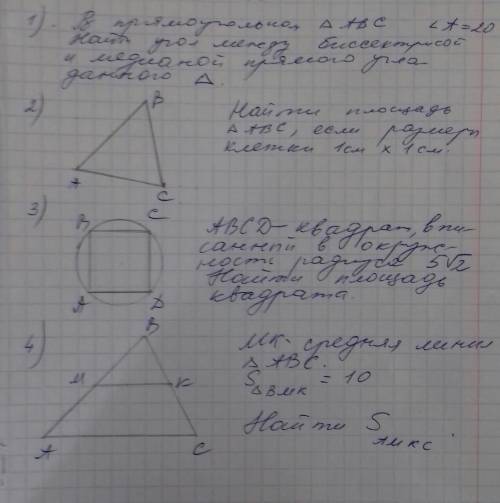 1). В прямоугольном △ABC ∠A=20
Найти угол между биссектрисой
и медианой прямого угла
данного △.
2)
B
A
C
Найти площадь
△ABC, если размеры
клетки 1см x 1см.
3)
B
C
A
D
ABCD - квадрат, впи-
санный в окруж-
ность радиуса 5√2
Найти площадь
квадрата.
4)
B
M
K
A
C
MK - средняя линия
△ABC.
S△BMK = 10
Найти S AMKC.